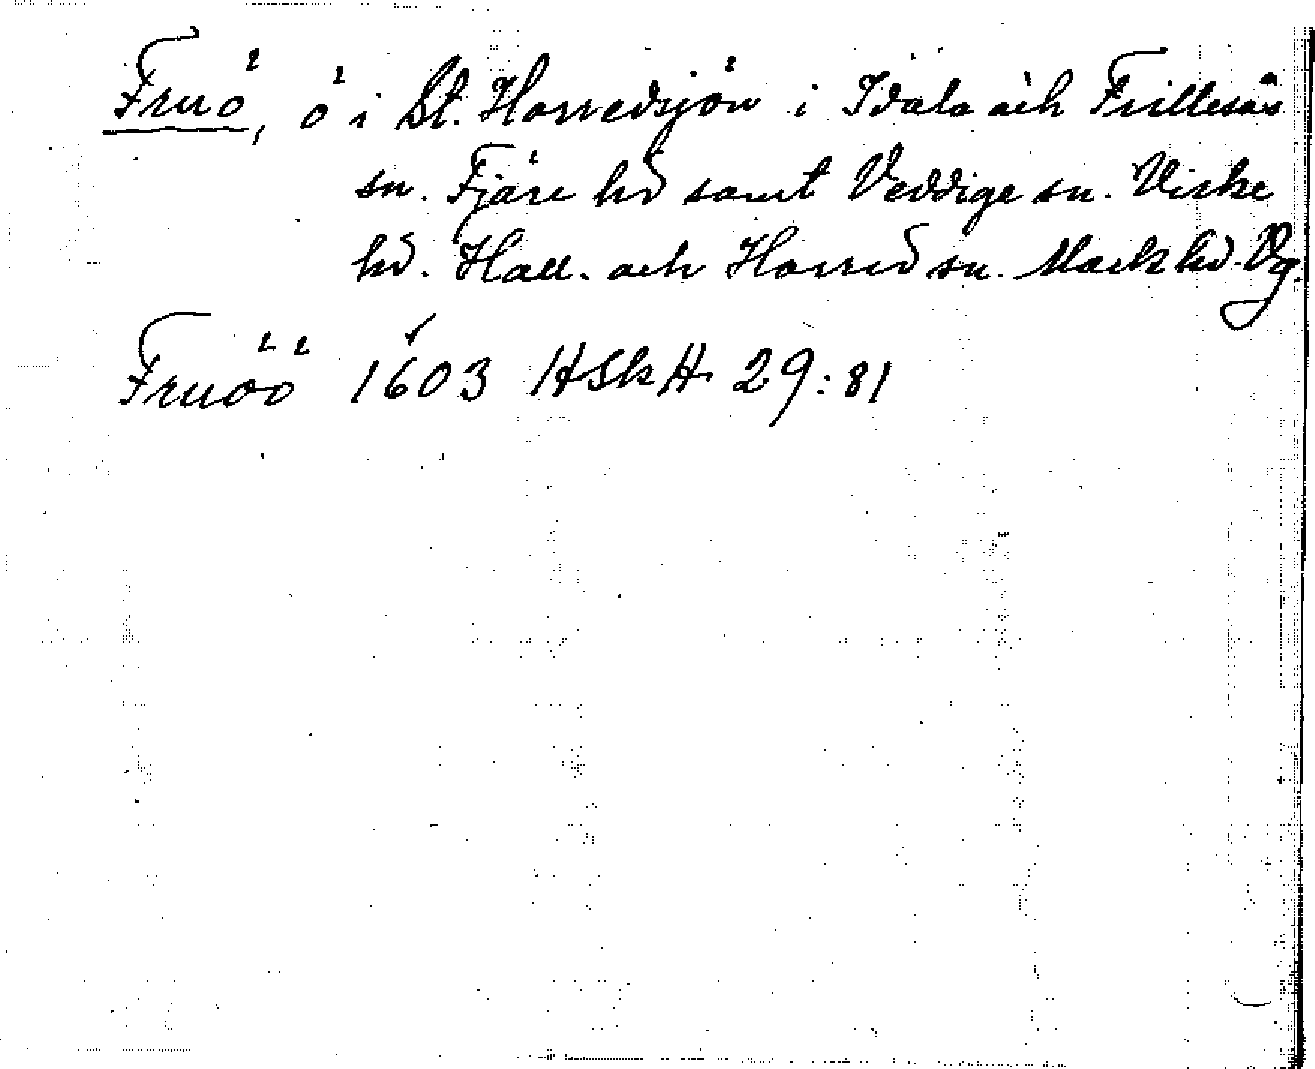 Fruö, ö i St. Horredsjön i Idala och Frillesås
sn. Fjäre hd samt Veddige sn. Viske
hd. Hall. och Horred sn. Mark hd. Vg.
Fruöö 1603 HSkH 29:81